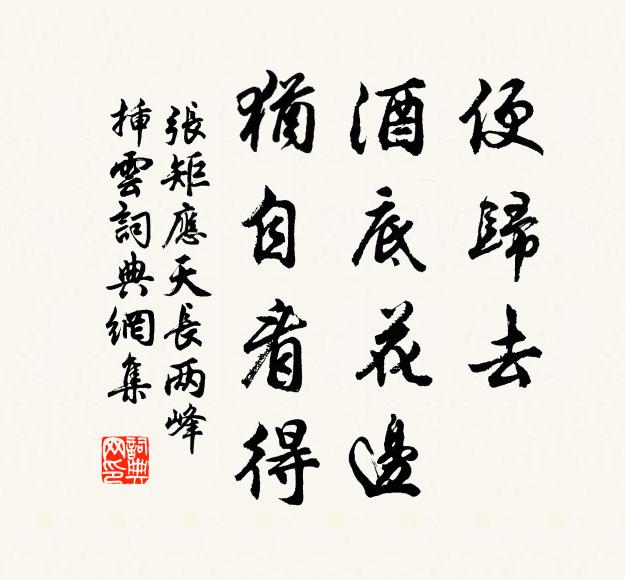 便歸去
酒底花邊
猶自看得
張矩應天長两峰
揷雲詞典網集
詞典
网印